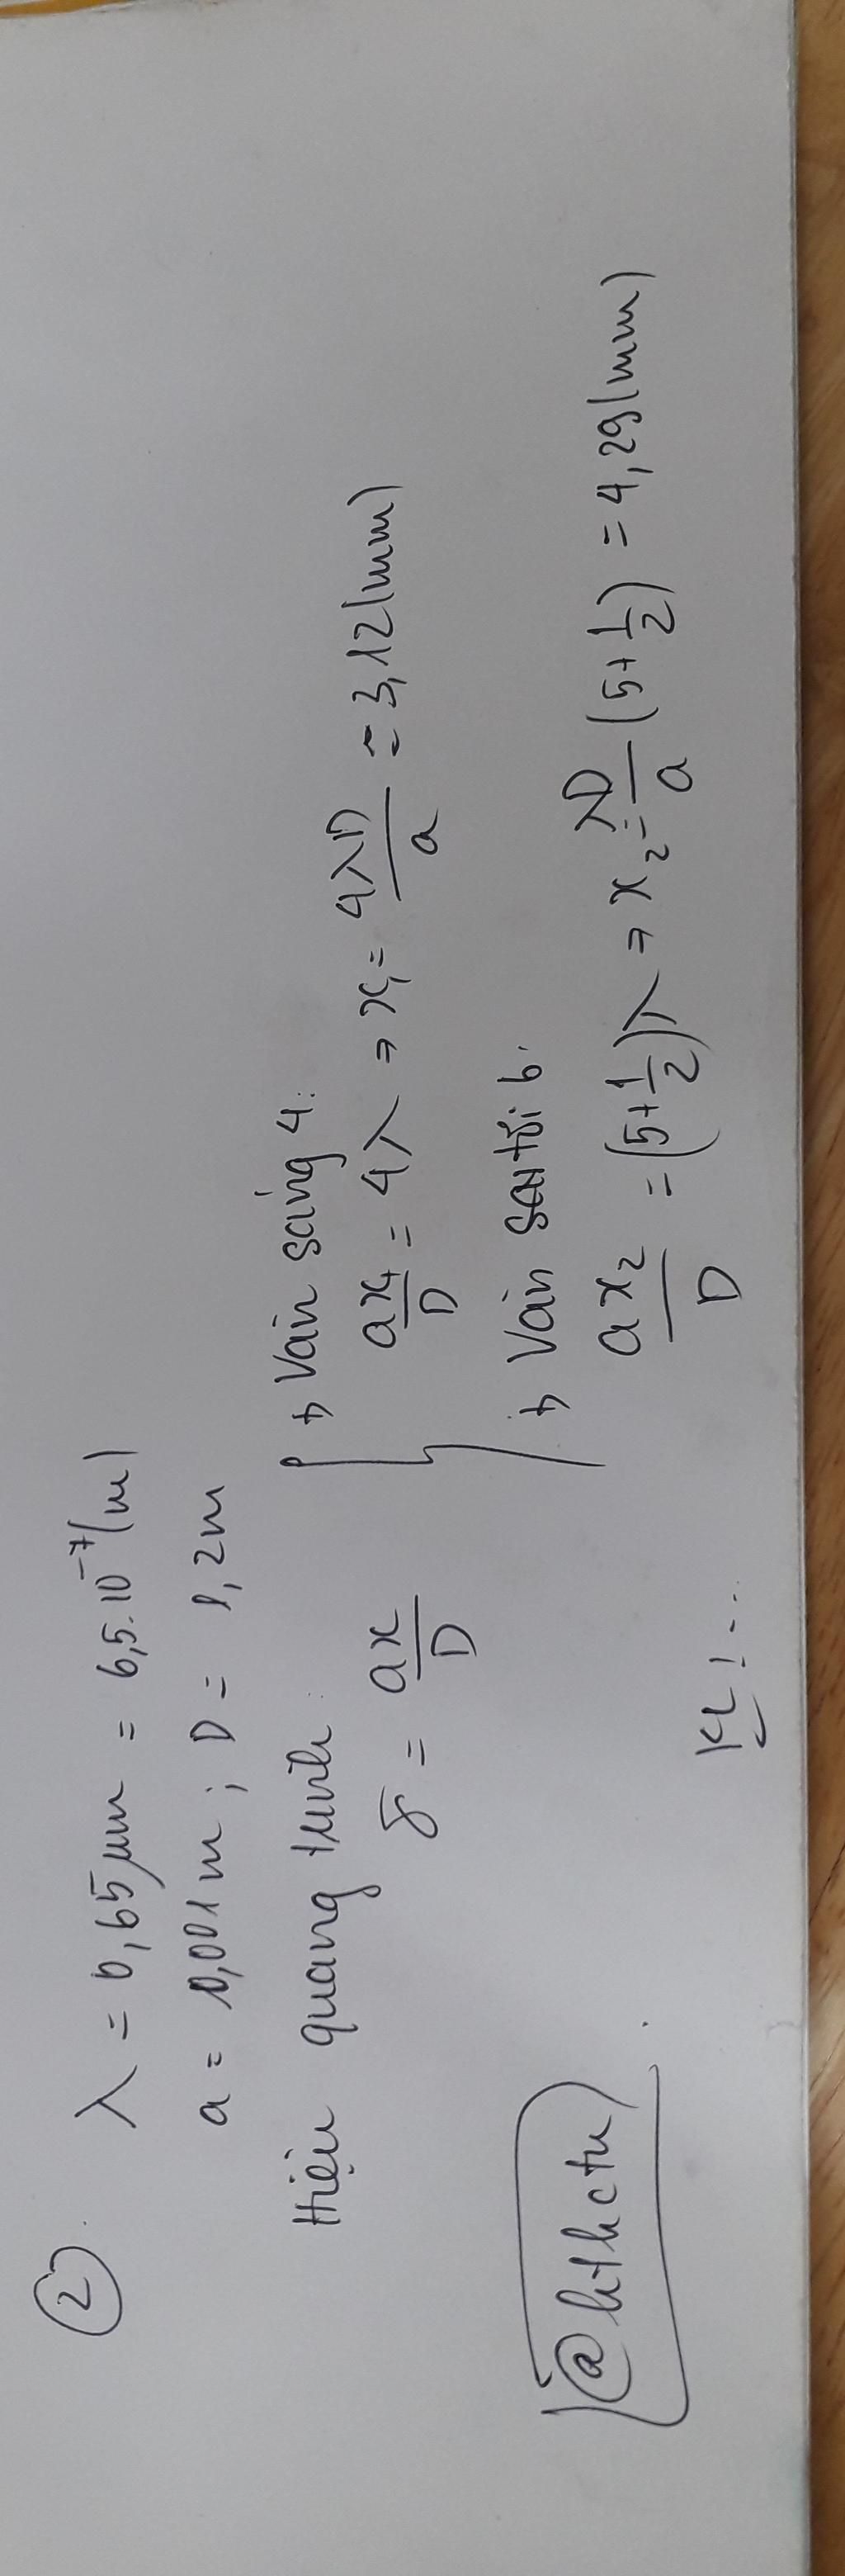 ② λ = 0,65μm = 6,5.10⁻⁷(m)
a = 0,001m ; D = 1,2m
Hiệu quang trình:
δ = ax/D
+, Vân sáng 4:
ax₁/D = 4λ ⇒ x₁ = 4λD/a = 3,12(mm)
+, Vân tối 6.
ax₂/D = (5+1/2)λ ⇒ x₂ = λD/a (5+1/2) = 4,29(mm)
KL: ...
@hthctu